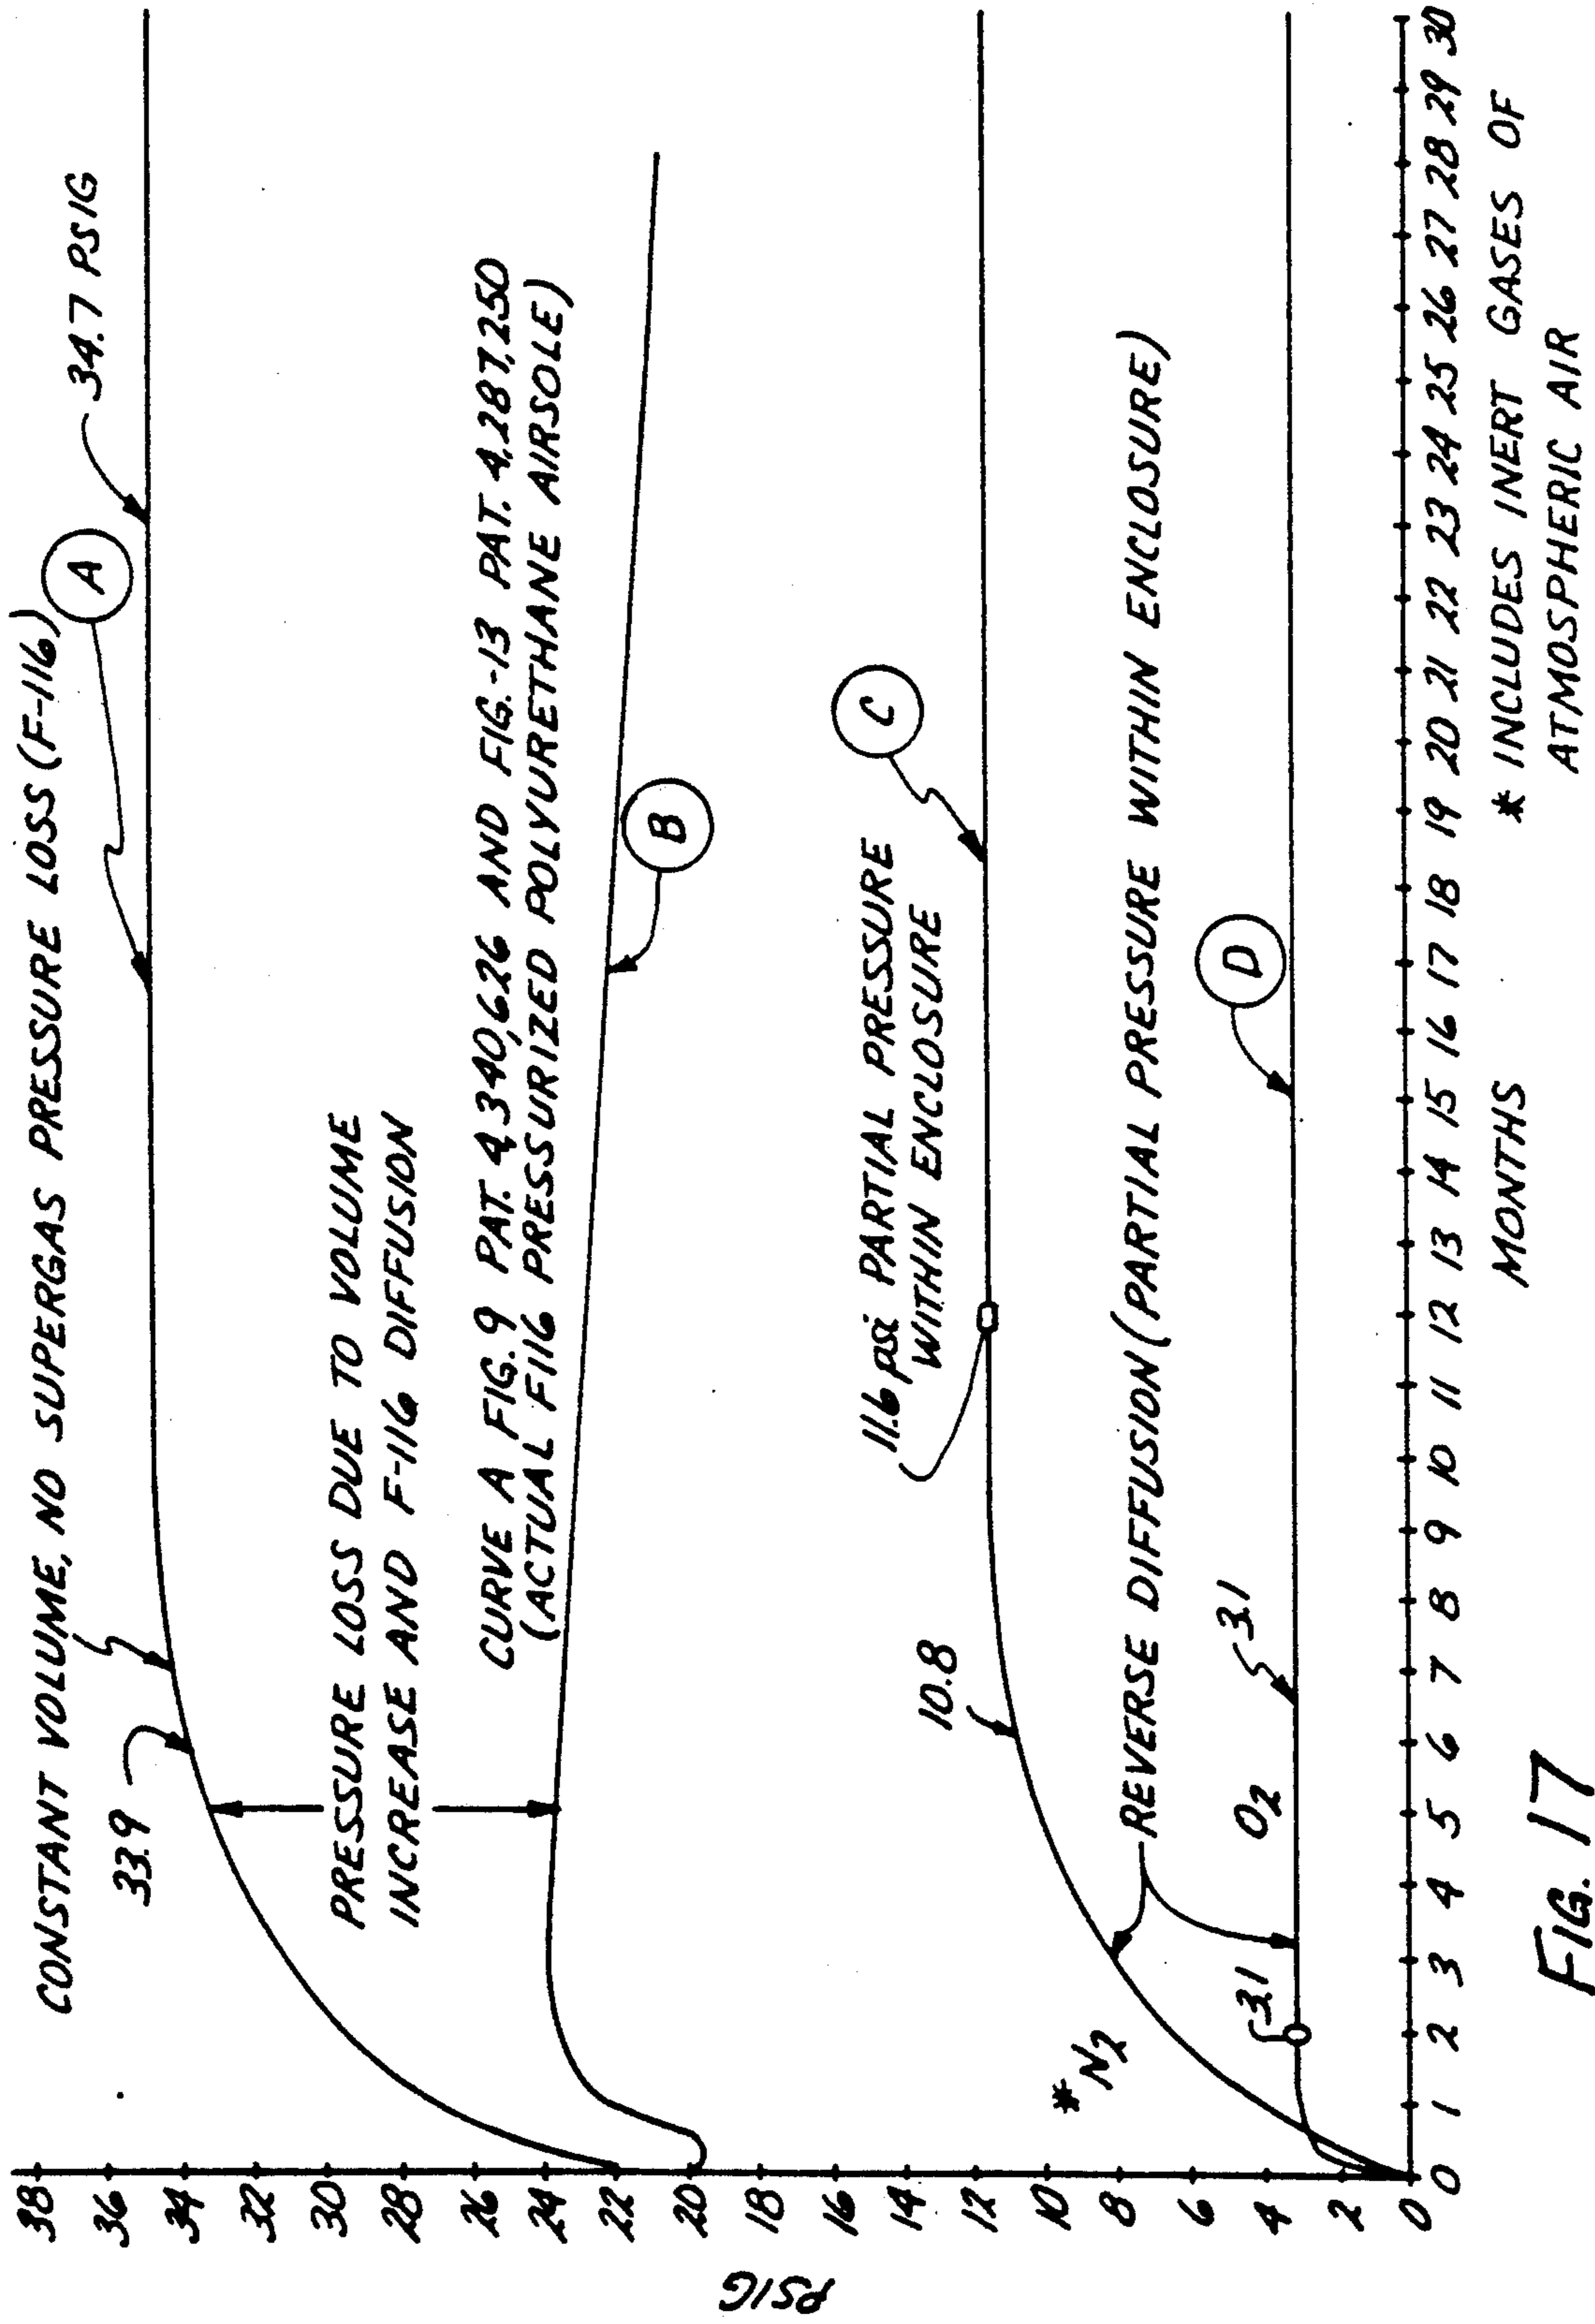 CONSTANT VOLUME, NO SUPERGAS PRESSURE LOSS (F-116)
A
34.7 PSIG
33.9
PRESSURE LOSS DUE TO VOLUME
INCREASE AND F-116 DIFFUSION
CURVE A FIG. 9 PAT. 4,340,626 AND FIG.-13 PAT. 4,287,250
(ACTUAL F116 PRESSURIZED POLYURETHANE AIRSOLE)
B
11.6 psi PARTIAL PRESSURE
WITHIN ENCLOSURE
C
10.8
REVERSE DIFFUSION (PARTIAL PRESSURE WITHIN ENCLOSURE)
* N2
3.1
O2
3.1
D
PSIG
38
36
34
32
30
28
26
24
22
20
18
16
14
12
10
8
6
4
2
0
0 1 2 3 4 5 6 7 8 9 10 11 12 13 14 15 16 17 18 19 20 21 22 23 24 25 26 27 28 29 30
MONTHS
* INCLUDES INERT GASES OF
ATMOSPHERIC AIR
FIG. 17